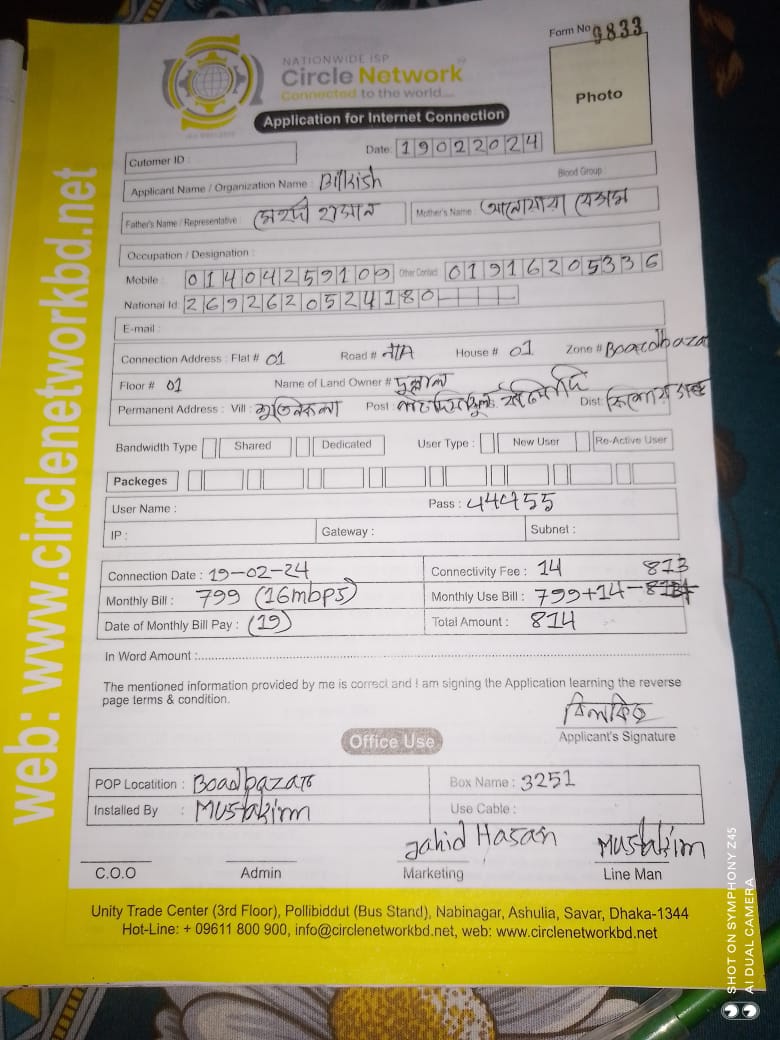 Form No 9833
NATIONWIDE ISP
Circle Network
Connected to the world....
Photo
Application for Internet Connection
Date: 19022024
Cutomer ID :
Applicant Name / Organization Name : Bilkish Blood Group :
Father's Name / Representative : মেহেদী হাসান Mother's Name : আনোয়ারা বেগম
Occupation / Designation :
Mobile : 01404259109 Other Contact 01916205336
National Id: 2692620524180
E-mail :
Connection Address : Flat # 01 Road # N/A House # 01 Zone # Boardbazar
Floor # 01 Name of Land Owner # দুলাল
Permanent Address : Vill : Post : Dist : কিশোরগঞ্জ
Bandwidth Type Shared Dedicated User Type : New User Re-Active User
Packeges
User Name : Pass : 444455
IP : Gateway : Subnet :
Connection Date : 19-02-24 Connectivity Fee : 14 813
Monthly Bill : 799 (16mbps) Monthly Use Bill : 799+14-
Date of Monthly Bill Pay : (19) Total Amount : 814
In Word Amount :
The mentioned information provided by me is correct and I am signing the Application learning the reverse
page terms & condition.
বিলকিছ
Applicant's Signature
Office Use
POP Locatition : Boadbazar Box Name : 3251
Installed By : Mustakim Use Cable :
Jahid Hasan Mustakim
C.O.O Admin Marketing Line Man
Unity Trade Center (3rd Floor), Pollibiddut (Bus Stand), Nabinagar, Ashulia, Savar, Dhaka-1344
Hot-Line: + 09611 800 900, info@circlenetworkbd.net, web: www.circlenetworkbd.net
web: www.circlenetworkbd.net
SHOT ON SYMPHONY Z45
AI DUAL CAMERA